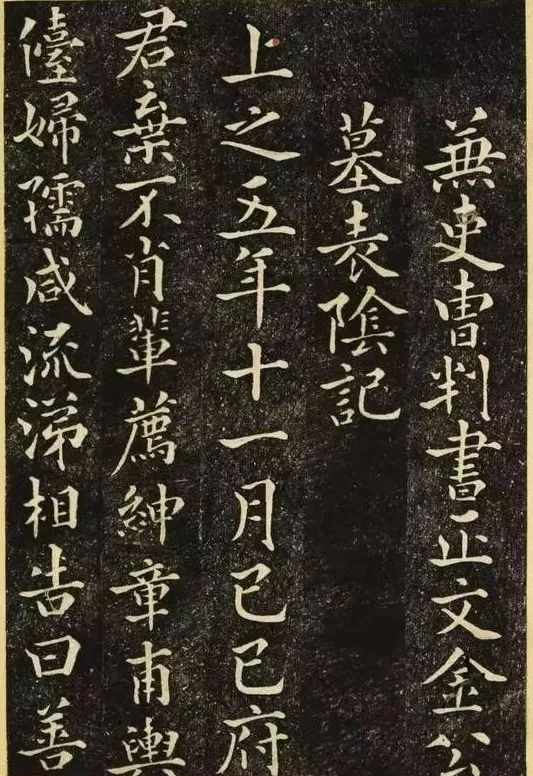 兼吏曺判書正文金公
墓表陰記
上之五年十一月己巳府
君棄不肖輩薦紳章甫輿
儓婦孺咸流涕相告曰善